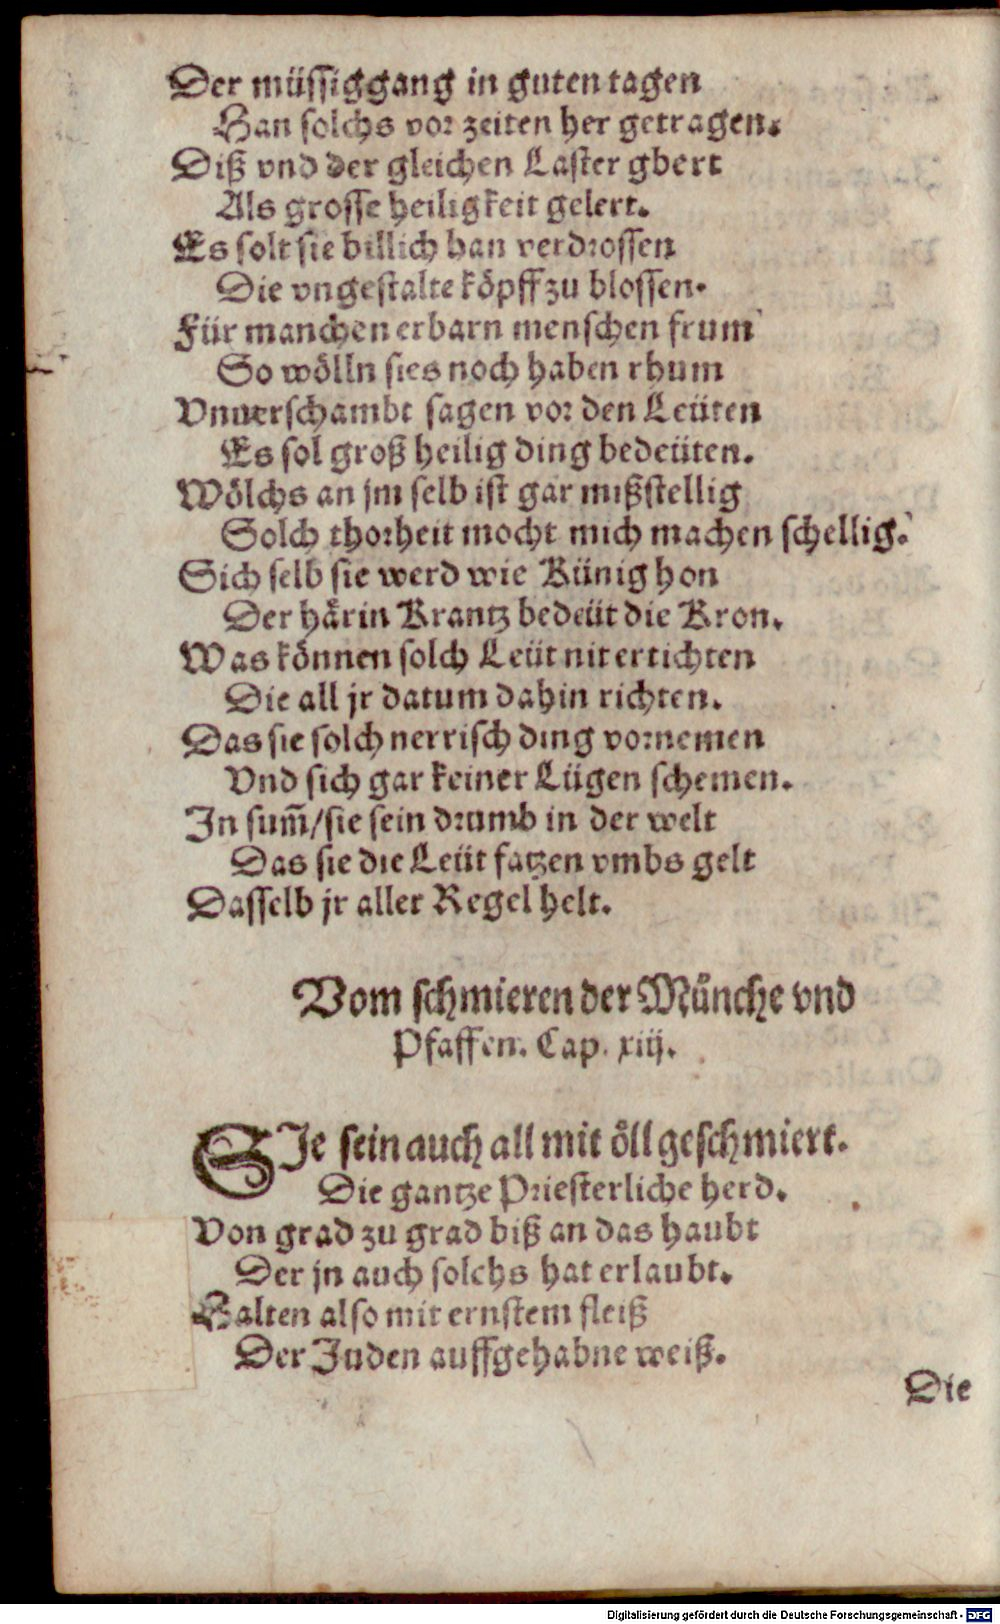 Der müssiggang in guten tagen
Han solchs vor zeiten her getragen.
Diß vnd der gleichen Laster gbert
Als grosse heiligkeit gelert.
Es solt sie billich han verdrossen
Die vngestalte köpff zu blossen.
Für manchen erbarn menschen frum
So wölln sies noch haben rhum
Vnuerschambt sagen vor den Leüten
Es sol groß heilig ding bedeüten.
Wölchs an jm selb ist gar mißstellig
Solch thorheit mocht mich machen schellig.
Sich selb sie werd wie Künig hon
Der hårin Krantz bedeüt die Kron.
Was können solch Leüt nit ertichten
Die all jr datum dahin richten.
Das sie solch nerrisch ding vornemen
Vnd sich gar keiner Lügen schemen.
In sum̄/sie sein drumb in der welt
Das sie die Leüt fatzen vmbs gelt
Dasselb jr aller Regel helt.
Vom schmieren der Münche vnd
Pfaffen. Cap. xiij.
SIe sein auch all mit öll geschmiert.
Die gantze Priesterliche herd.
Von grad zu grad biß an das haubt
Der jn auch solchs hat erlaubt.
Halten also mit ernstem fleiß
Der Juden auffgehabne weiß.
Die
Digitalisierung gefördert durch die Deutsche Forschungsgemeinschaft - DFG